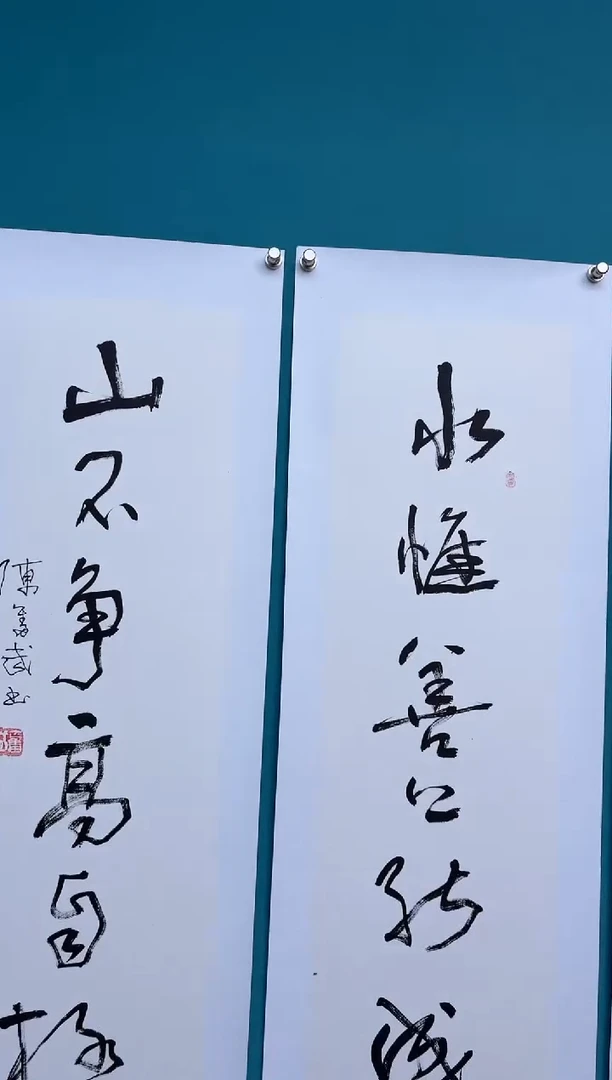 水惟善下能成
山不争高自极
陳